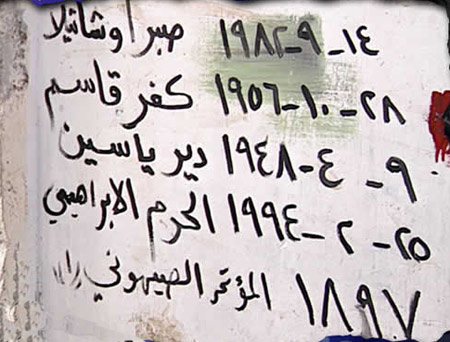 ١٤-٩-١٩٨٢ صبرا وشاتيلا
٢٨-١٠-١٩٥٦ كفر قاسم
٩-٤-١٩٤٨ دير ياسين
٢٥-٢-١٩٩٤ الحرم الابراهيمي
١٨٩٧ المؤتمر الصهيوني